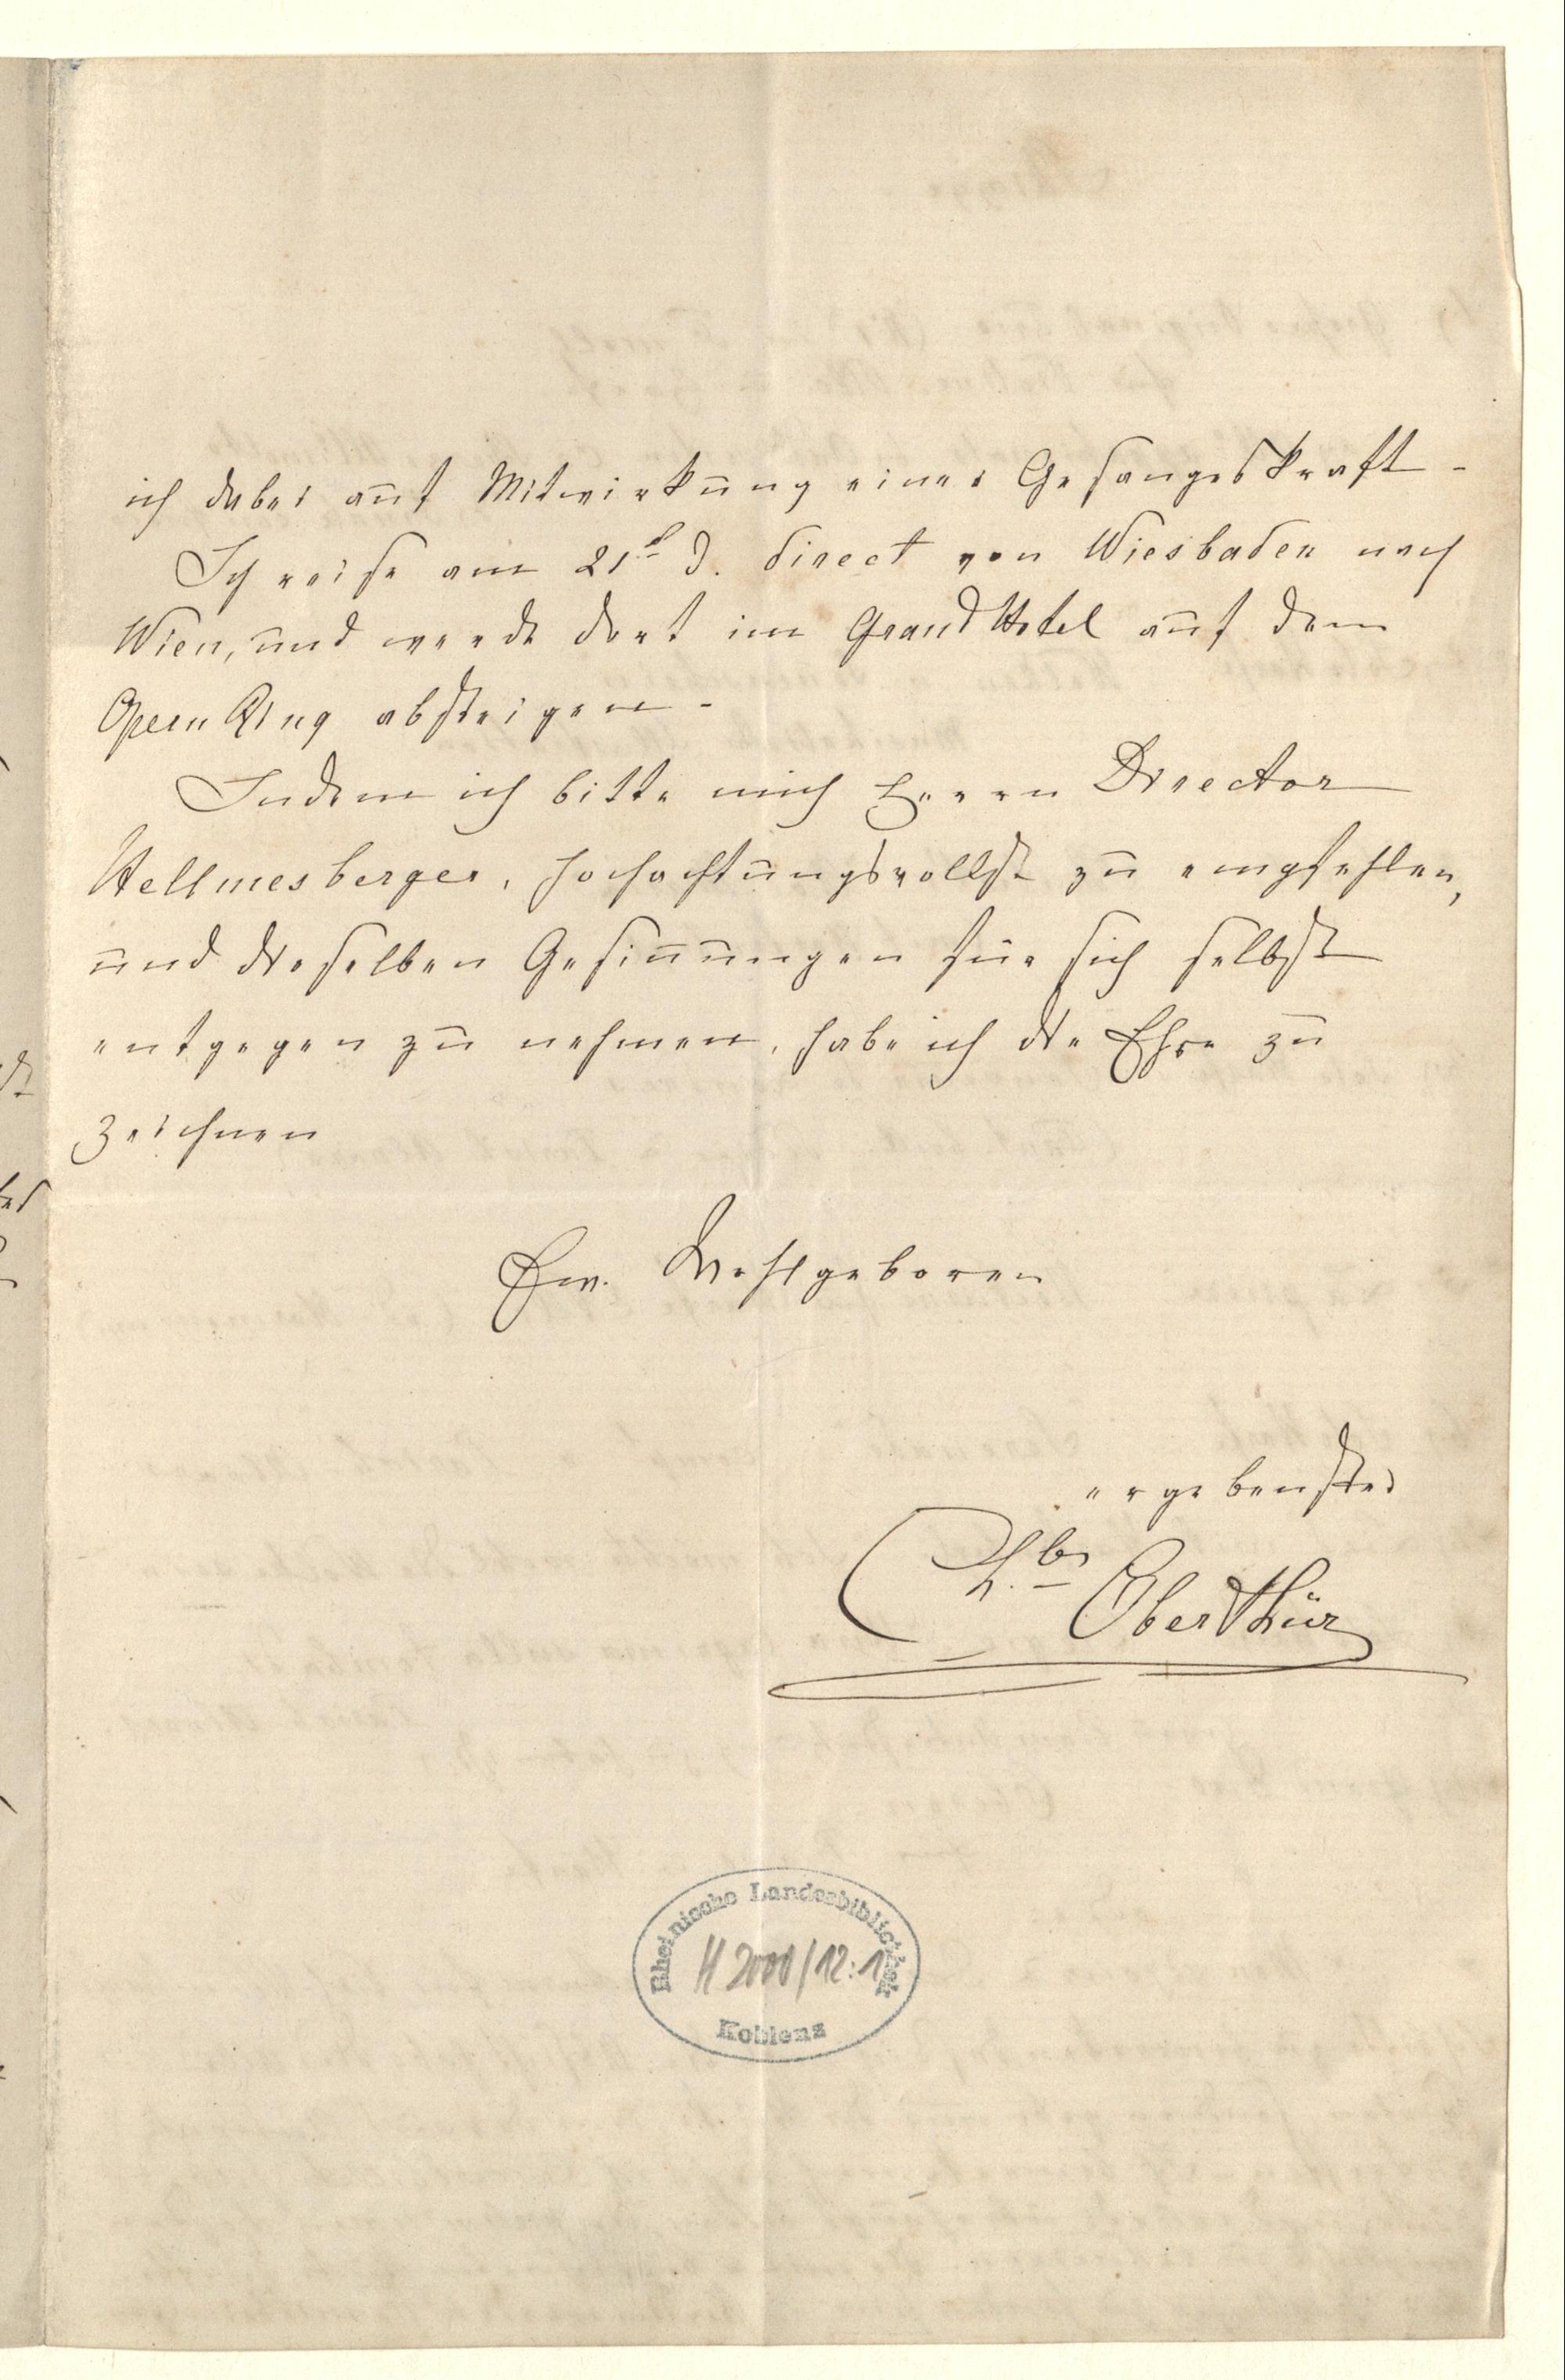 ich dabei auf Mitwirkung einer Gesangeskraft -
Ich reise am 21t d. direct von Wiesbaden nach
Wien, und werde dort im Grand Hotel auf dem
Opern Ring absteigen -
Indem ich bitte mich Herrn Director
Hellmesberger, hochachtungsvollst zu empfehlen,
und dieselben Gesinnungen für sich selbst
entgegen zu nehmen, habe ich die Ehre zu
zeichnen
Ew. Wohlgeboren
ergebenster
Oberthür
Rheinische Landesbibliothek
H 2000/12:1
Koblenz